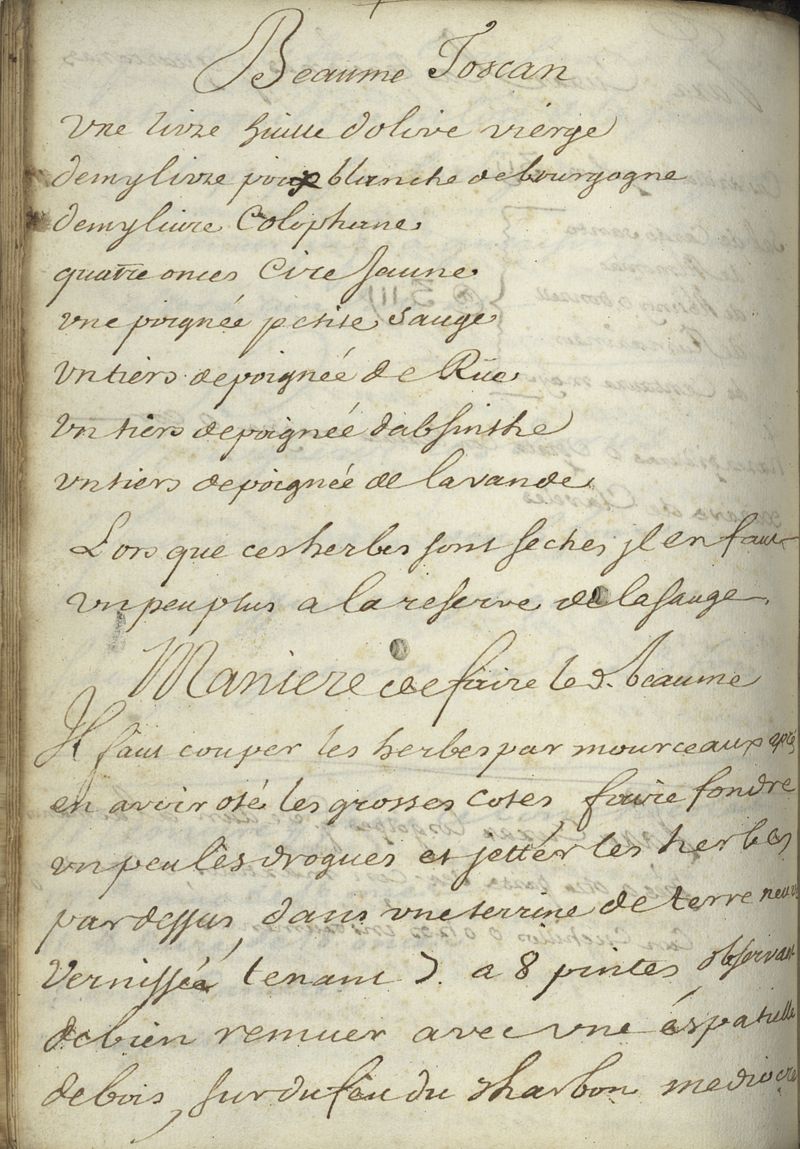 Beaume Toscan
Vne livre huille dolive viérge
demy livre poix blanche de bourgogne
demy livre Colophane
quatre onces Cire Jaune
vne poignée petite sauge
vn tiers de poignée de Rüe
vn tiers de poignée dabsinthe
vn tiers de poignée de lavande
Lors que ces herbes sont seches jl en faut
vn peu plus a la reserve de la sauge
Maniere de faire le d. beaume
Jl faut couper les herbes par mourceaux apres
en avoir oté les grosses cotes, faire fondre
vn peu les drogues et jettér les herbes
par dessus, dans vne terrine de terre neuve
Vernissée tenant 7. a 8 pintes observant
de bien remuer avec vne éspatulle
de bois, sur du feu du charbon mediocre